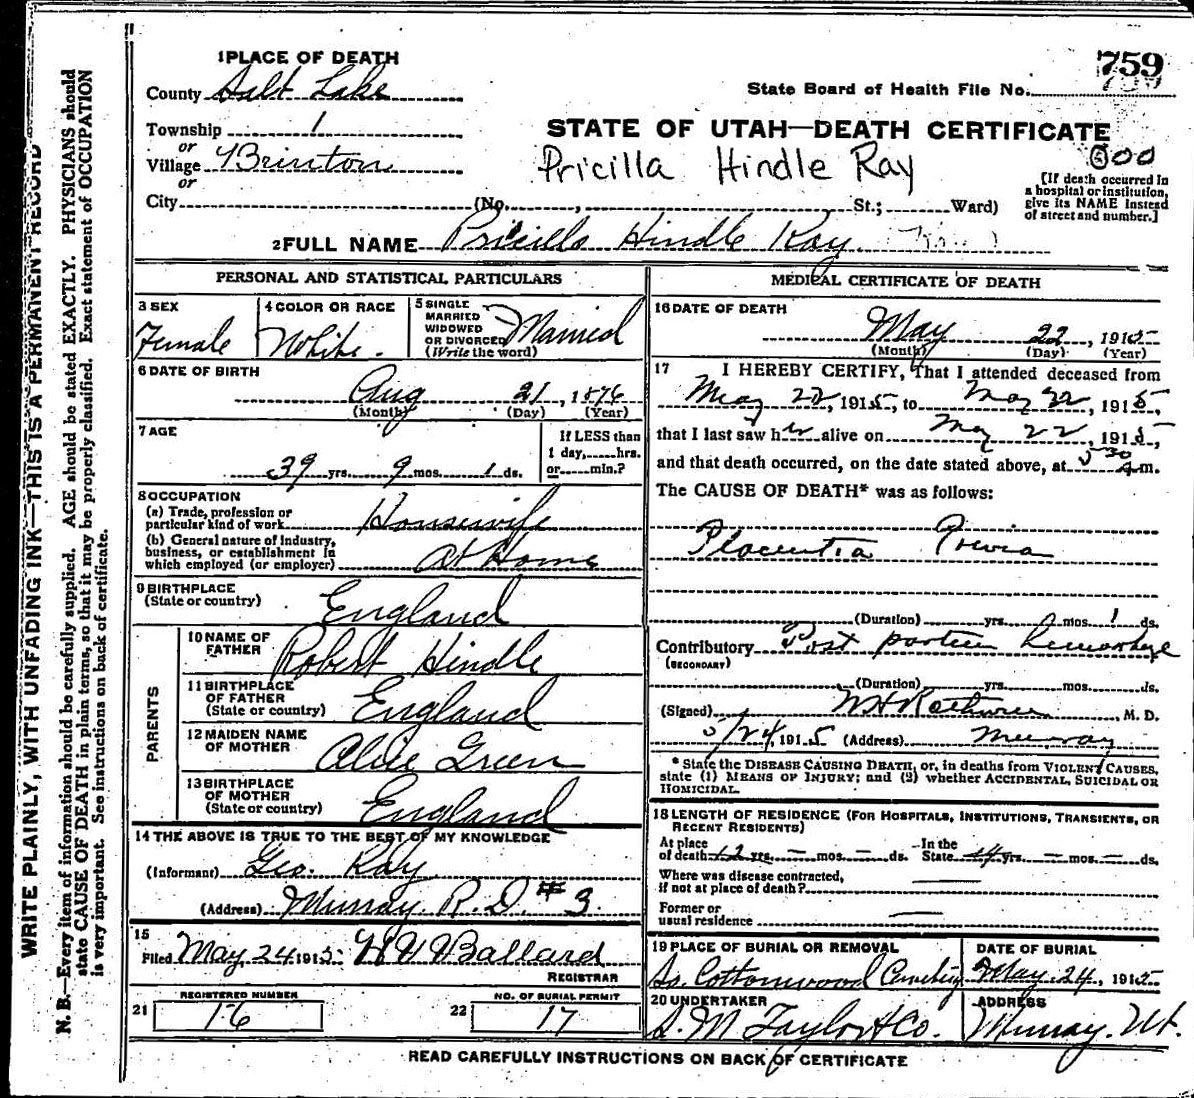 759
1 PLACE OF DEATH
State Board of Health File No.
County Salt Lake
Township 1
STATE OF UTAH—DEATH CERTIFICATE
or
Village Brinton
Pricilla Hindle Ray
300
or
[If death occurred in a hospital or institution, give its NAME instead of street and number.]
City (No. , St.; Ward)
2 FULL NAME Pricilla Hindle Ray
PERSONAL AND STATISTICAL PARTICULARS
3 SEX
Female
4 COLOR OR RACE
White.
5 SINGLE
MARRIED
WIDOWED
OR DIVORCED
(Write the word)
Married
6 DATE OF BIRTH
Aug 21, 1876
(Month) (Day) (Year)
7 AGE
39 yrs. 9 mos. 1 ds.
If LESS than
1 day, hrs.
or min.?
8 OCCUPATION
(a) Trade, profession or
particular kind of work Housewife
(b) General nature of industry,
business, or establishment in
which employed (or employer) At Home
9 BIRTHPLACE
(State or country) England
PARENTS
10 NAME OF
FATHER Robert Hindle
11 BIRTHPLACE
OF FATHER
(State or country) England
12 MAIDEN NAME
OF MOTHER Alice Green
13 BIRTHPLACE
OF MOTHER
(State or country) England
14 THE ABOVE IS TRUE TO THE BEST OF MY KNOWLEDGE
(Informant) Geo. Ray
(Address) Murray R. D. # 3.
15
Filed May 24 1915 Ballard
REGISTRAR
REGISTERED NUMBER
21 16
NO. OF BURIAL PERMIT
22 17
MEDICAL CERTIFICATE OF DEATH
16 DATE OF DEATH
May 22, 1915
(Month) (Day) (Year)
17 I HEREBY CERTIFY, That I attended deceased from
May 22, 1915, to May 22, 1915,
that I last saw her alive on May 22, 1915,
and that death occurred, on the date stated above, at 5 30 A m.
The CAUSE OF DEATH* was as follows:
Placentia Previa
(Duration) yrs. mos. 1 ds.
Contributory Post partum hemorrhage
(SECONDARY)
(Duration) yrs. mos. ds.
(Signed) , M. D.
5/24, 1915 (Address) Murray
* State the DISEASE CAUSING DEATH, or, in deaths from VIOLENT CAUSES,
state (1) MEANS OF INJURY; and (2) whether ACCIDENTAL, SUICIDAL OR
HOMICIDAL.
18 LENGTH OF RESIDENCE (FOR HOSPITALS, INSTITUTIONS, TRANSIENTS, OR
RECENT RESIDENTS)
At place
of death 12 yrs. — mos. — ds.
In the
State 14 yrs. — mos. — ds.
Where was disease contracted,
if not at place of death?
Former or
usual residence
19 PLACE OF BURIAL OR REMOVAL
So. Cottonwood Cemetery
DATE OF BURIAL
May 24, 1915
20 UNDERTAKER
S. M. Taylor & Co.
ADDRESS
Murray. Ut.
READ CAREFULLY INSTRUCTIONS ON BACK OF CERTIFICATE
WRITE PLAINLY, WITH UNFADING INK—THIS IS A PERMANENT RECORD
N. B.—Every item of information should be carefully supplied. AGE should be stated EXACTLY. PHYSICIANS should
state CAUSE OF DEATH in plain terms, so that it may be properly classified. Exact statement of OCCUPATION
is very important. See instructions on back of certificate.